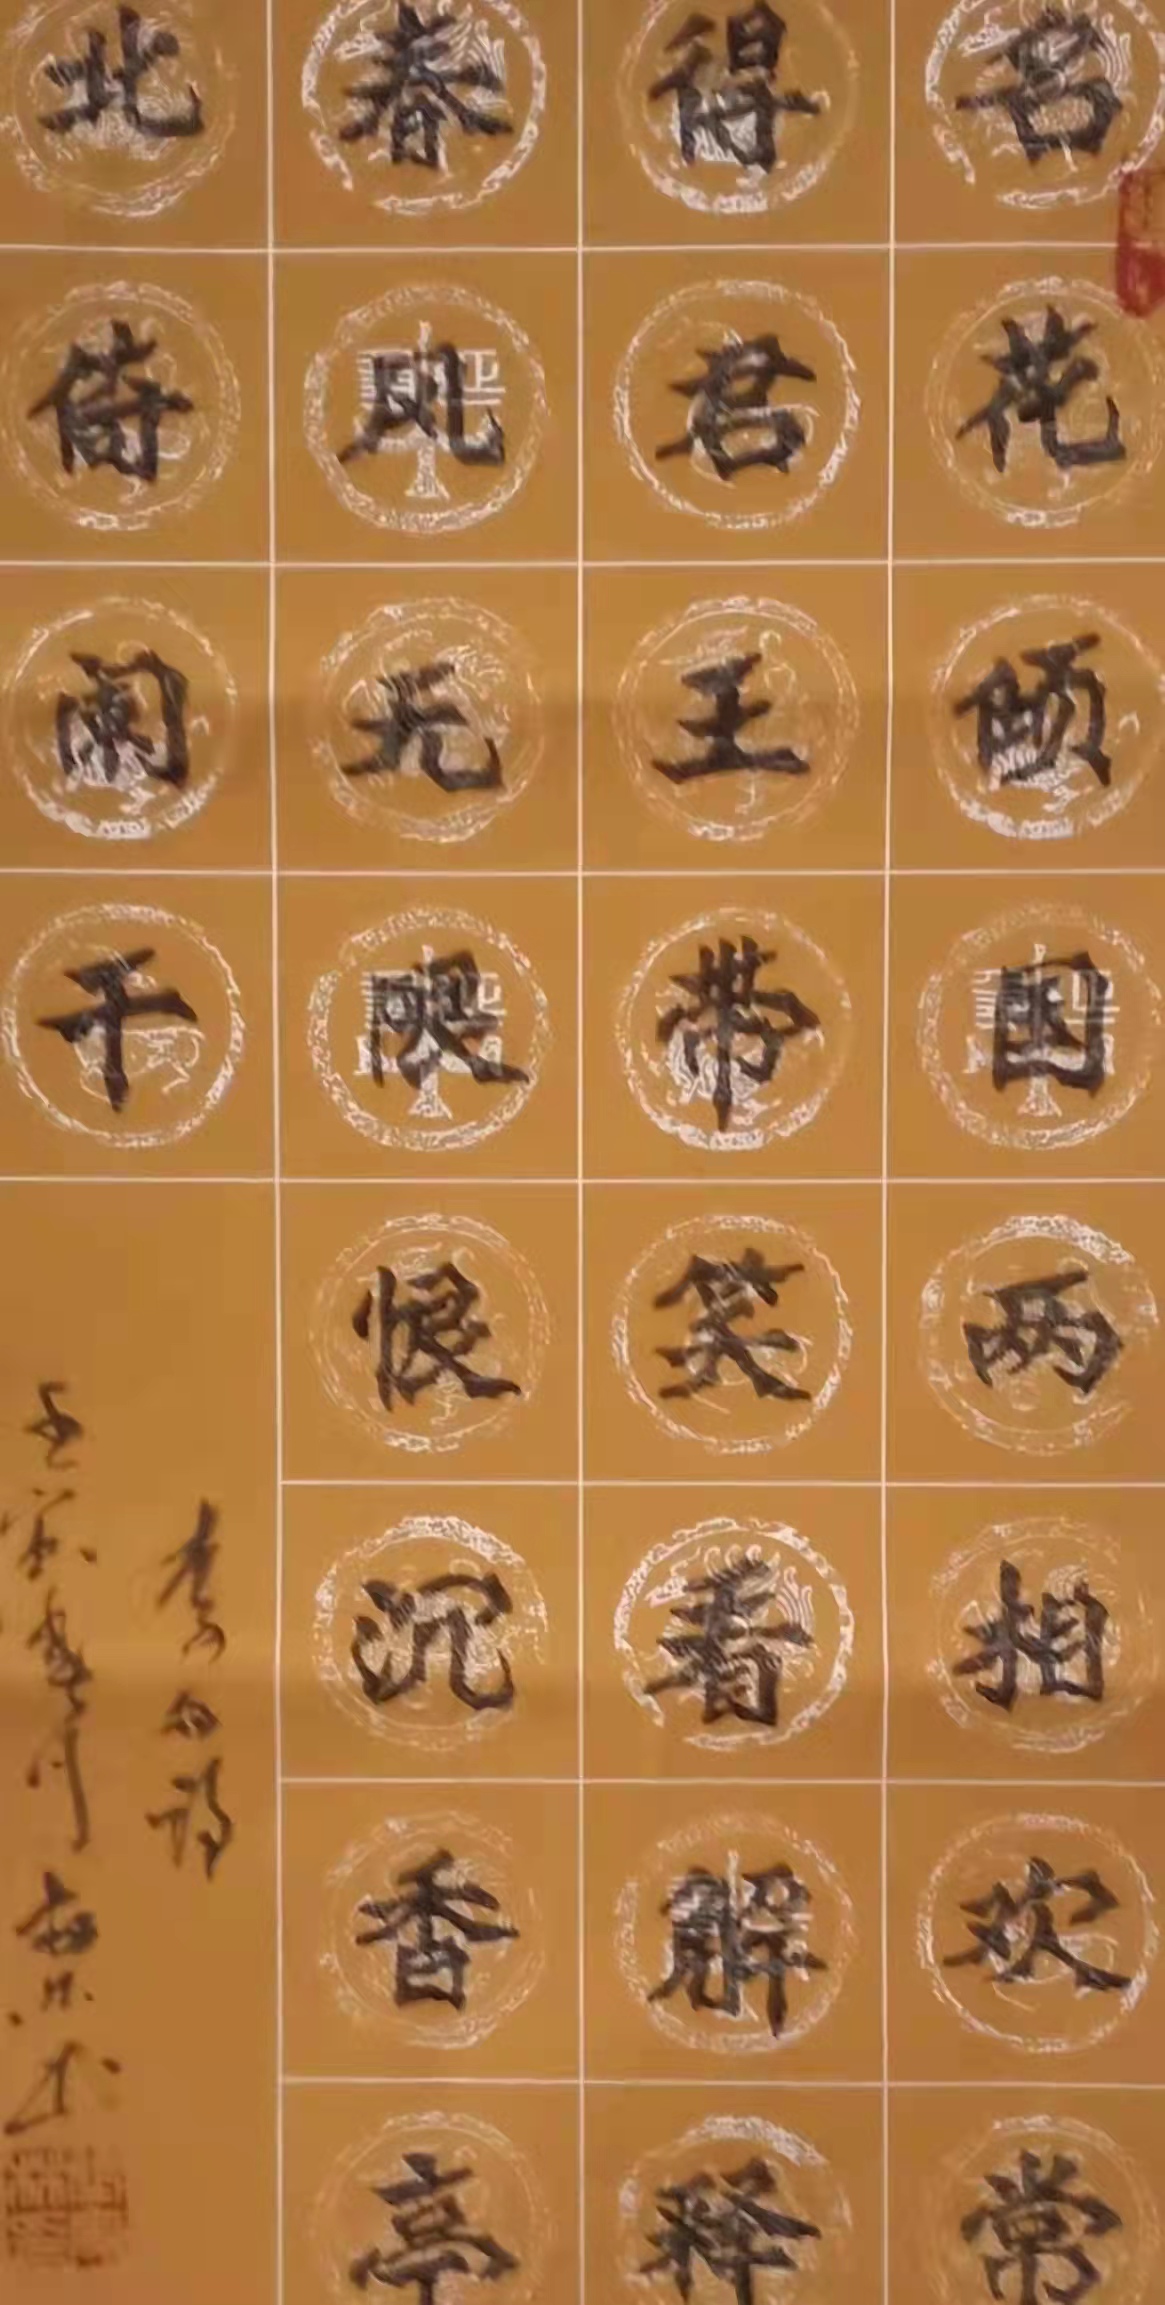 名花倾国两相欢常
得君王带笑看解释
春风无限恨沉香亭
北倚阑干
李白诗
壬寅